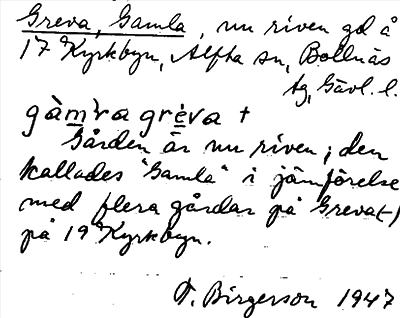 Greva, Gamla, nu riven gd å
17 Kyrkbyn, Alfta sn, Bollnäs
tg, Gävl. l.
gàm̀ra grèva +
Gården är nu riven; den
kallades "Gamla" i jämförelse
med flera gårdar på Greva(-)
på 19 Kyrkbyn.
F. Birgerson 1947